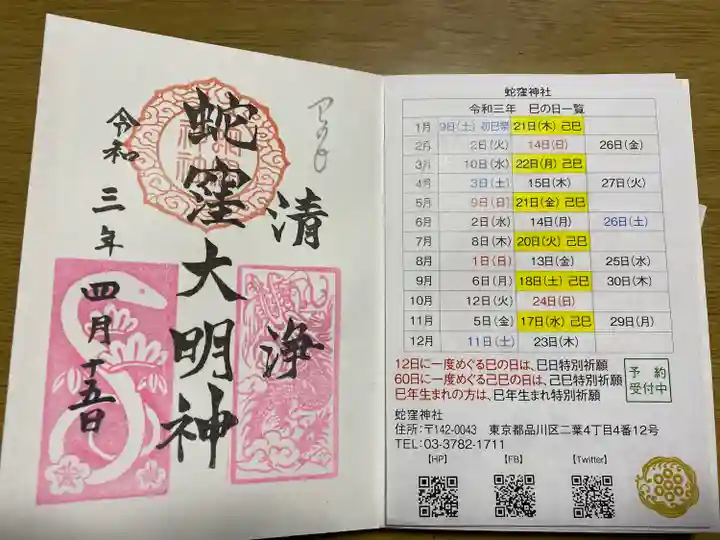 巳の日
清浄
蛇窪大明神
令和三年四月十五日
蛇窪神社
令和三年 巳の日一覧
1月 9日(土) 初巳祭 21日(木) 己巳
2月 2日(火) 14日(日) 26日(金)
3月 10日(水) 22日(月) 己巳
4月 3日(土) 15日(木) 27日(火)
5月 9日(日) 21日(金) 己巳
6月 2日(水) 14日(月) 26日(土)
7月 8日(木) 20日(火) 己巳
8月 1日(日) 13日(金) 25日(水)
9月 6日(月) 18日(土) 己巳 30日(木)
10月 12日(火) 24日(日)
11月 5日(金) 17日(水) 己巳 29日(月)
12月 11日(土) 23日(木)
12日に一度めぐる巳の日は、巳日特別祈願
60日に一度めぐる己巳の日は、己巳特別祈願
巳年生まれの方は、巳年生まれ特別祈願
予約
受付中
蛇窪神社
住所:〒142-0043 東京都品川区二葉4丁目4番12号
TEL:03-3782-1711
【HP】 【FB】 【Twitter】